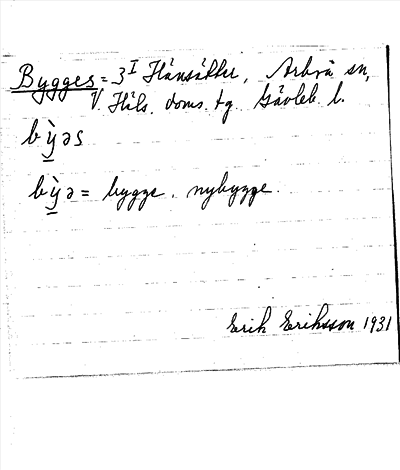 Bygges = 3^I Hänsätter, Arbrå sn,
V. Häls. doms. tg. Gävleb. l.
bỳəs
bỳə = bygge. nybygge.
Erik Eriksson 1931